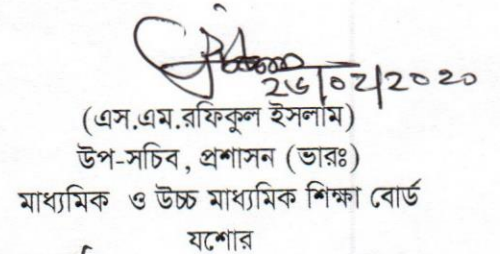 ২৬/০২/২০২০
(এস.এম.রফিকুল ইসলাম)
উপ-সচিব, প্রশাসন (ভারঃ)
মাধ্যমিক ও উচ্চ মাধ্যমিক শিক্ষা বোর্ড
যশোর